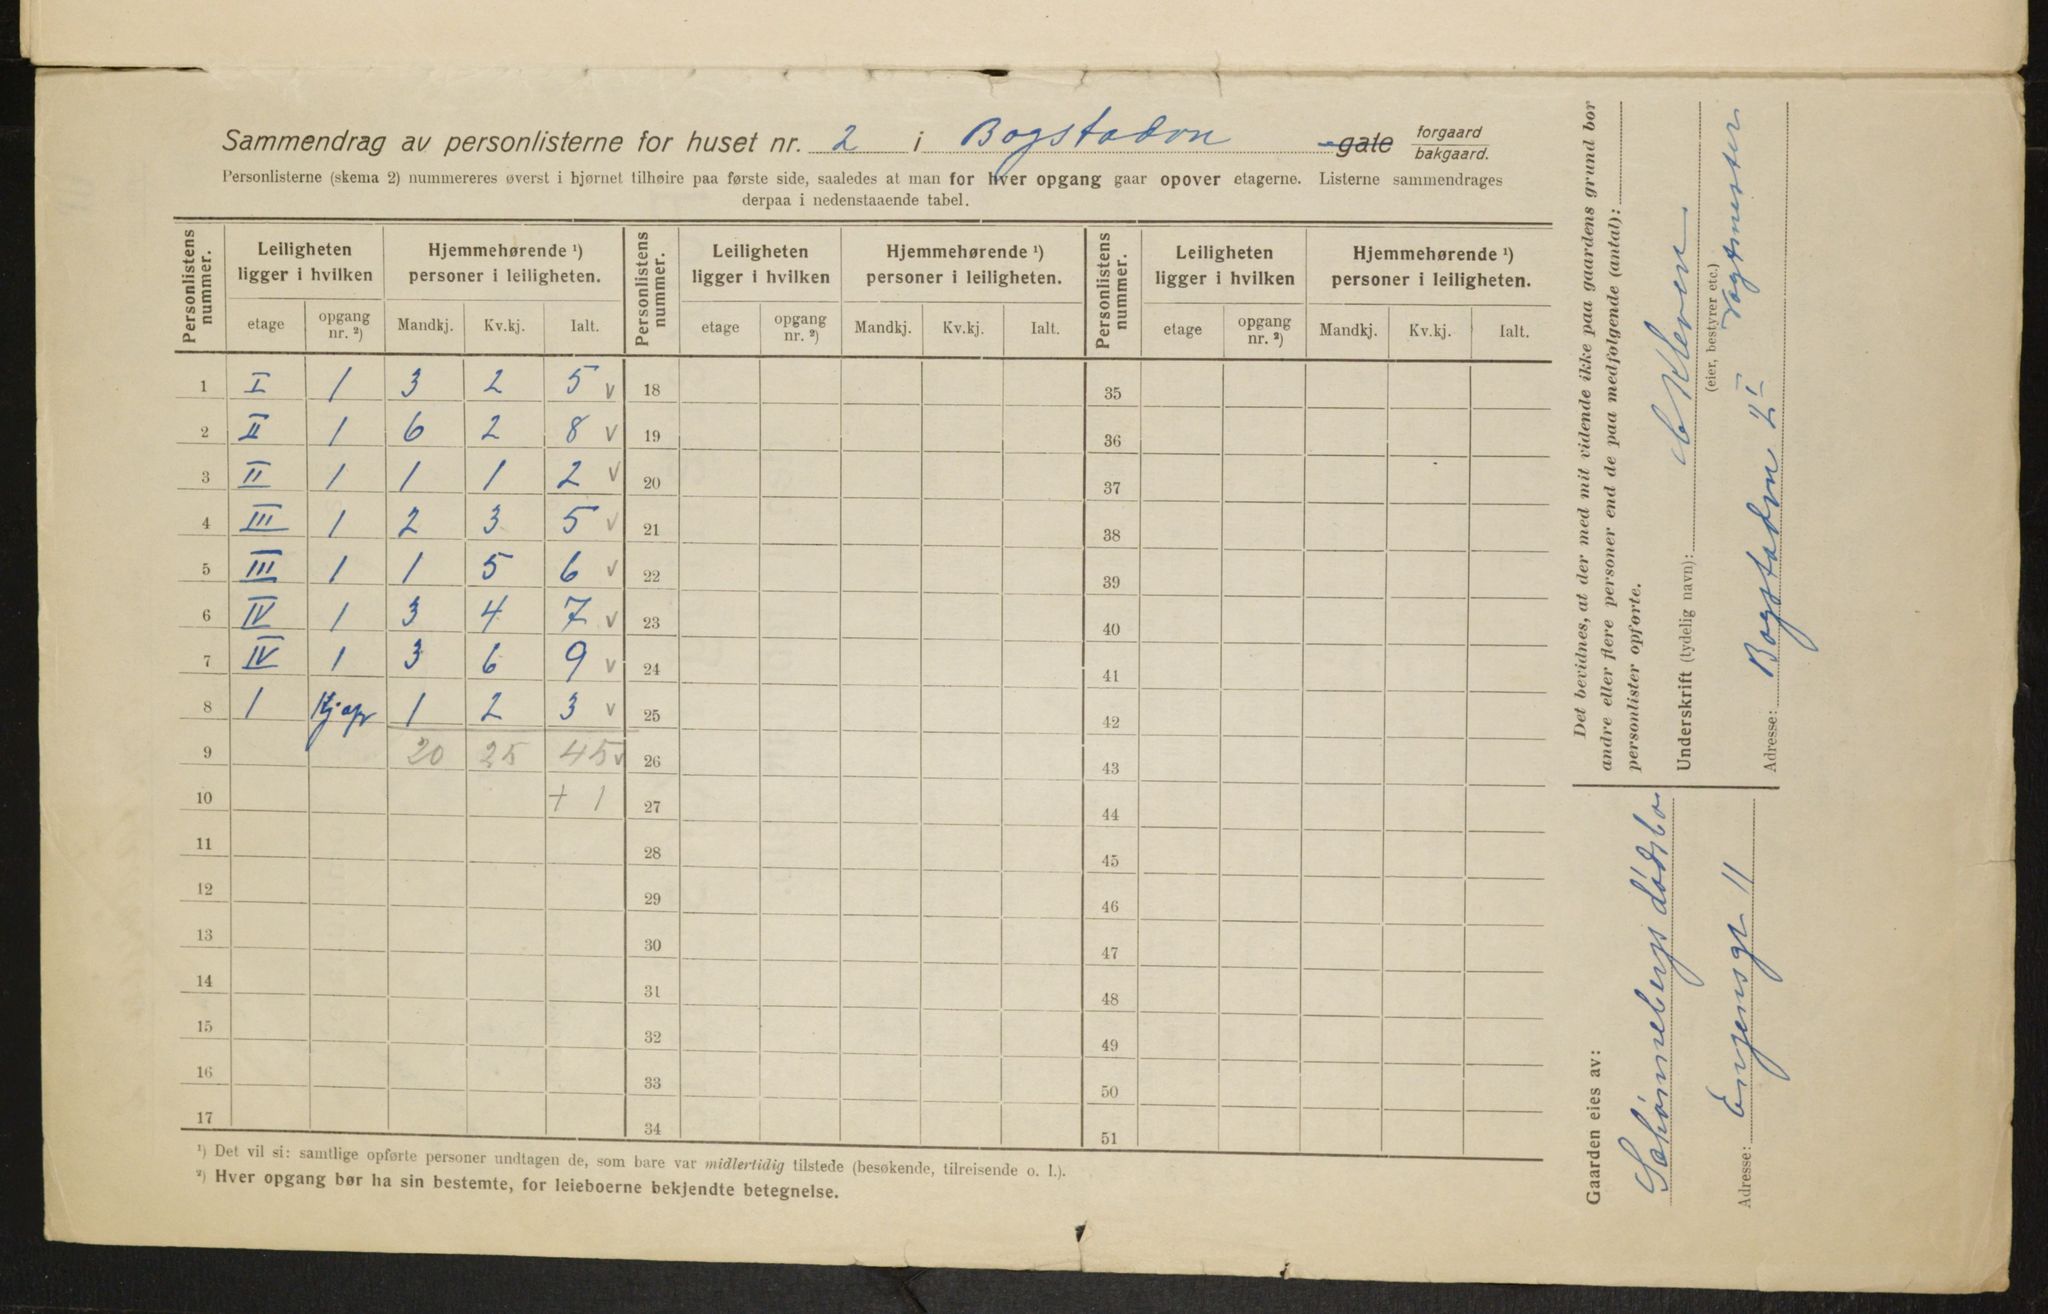 Sammendrag av personlisterne for huset nr. 2 i Bogstadvn -gate forgaard bakgaard.
Personlisterne (skema 2) nummereres øverst i hjørnet tilhøire paa første side, saaledes at man for hver opgang gaar opover etagerne. Listerne sammendrages
derpaa i nedenstaaende tabel.
Personlistens nummer. Leiligheten ligger i hvilken Hjemmehørende ¹) personer i leiligheten. Personlistens nummer. Leiligheten ligger i hvilken Hjemmehørende ¹) personer i leiligheten. Personlistens nummer. Leiligheten ligger i hvilken Hjemmehørende ¹) personer i leiligheten.
etage opgang nr. ²) Mandkj. Kv.kj. Ialt. etage opgang nr. ²) Mandkj. Kv.kj. Ialt. etage opgang nr. ²) Mandkj. Kv.kj. Ialt.
1 I 1 3 2 5 v 18 35
2 II 1 6 2 8 v 19 36
3 II 1 1 1 2 v 20 37
4 III 1 2 3 5 v 21 38
5 III 1 1 5 6 v 22 39
6 IV 1 3 4 7 v 23 40
7 IV 1 3 6 9 v 24 41
8 1 1 2 3 v 25 42
9 20 25 45 v 26 43
10 + 1 27 44
11 28 45
12 29 46
13 30 47
14 31 48
15 32 49
16 33 50
17 34 51
¹) Det vil si: samtlige opførte personer undtagen de, som bare var midlertidig tilstede (besøkende, tilreisende o. l.).
²) Hver opgang bør ha sin bestemte, for leieboerne bekjendte betegnelse.
Det bevidnes, at der med mit vidende ikke paa gaardens grund bor
andre eller flere personer end de paa medfølgende (antal):
personlister opførte.
Underskrift (tydelig navn): C Kleven
(eier, bestyrer etc.)
Vagtmester
Adresse: Bogstadvn 2 I
Gaarden eies av:
Schönnebergs dødsbo
Adresse: Engensgt 11